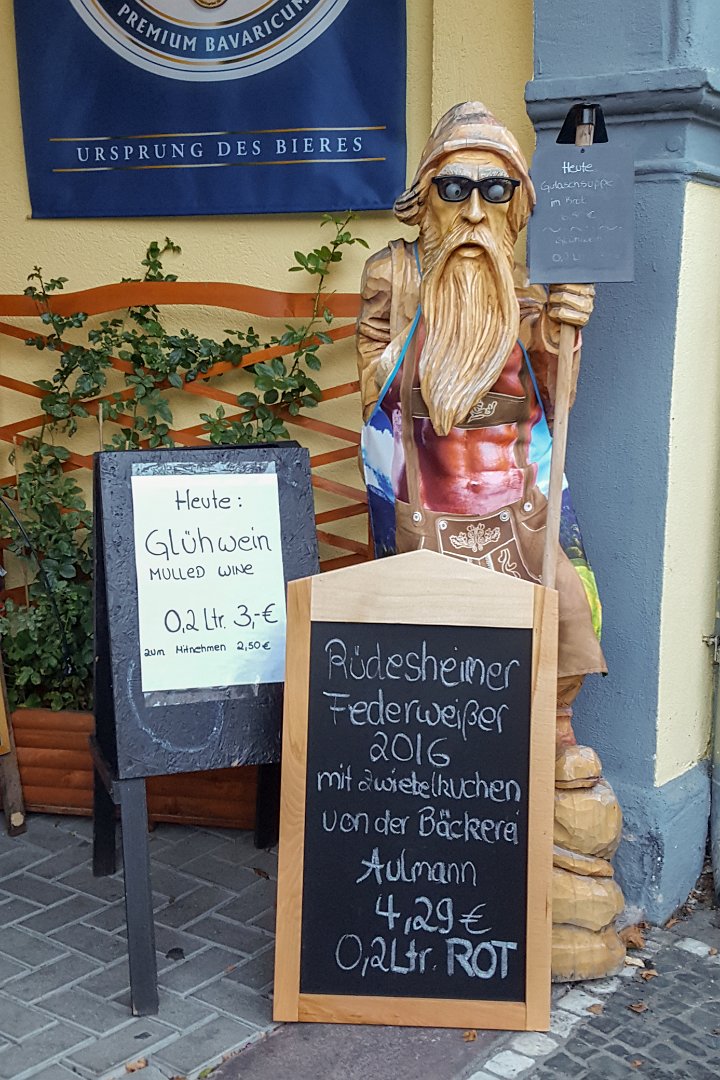 PREMIUM BAVARICUM
URSPRUNG DES BIERES
Heute
Gulaschsuppe
im Brot
Glühwein
0,2 L
Heute:
Glühwein
MULLED WINE
0,2 Ltr. 3,-€
zum Mitnehmen 2,50€
Rüdesheimer
Federweißer
2016
mit zwiebelkuchen
von der Bäckerei
Aulmann
4,29 €
0,2Ltr. ROT